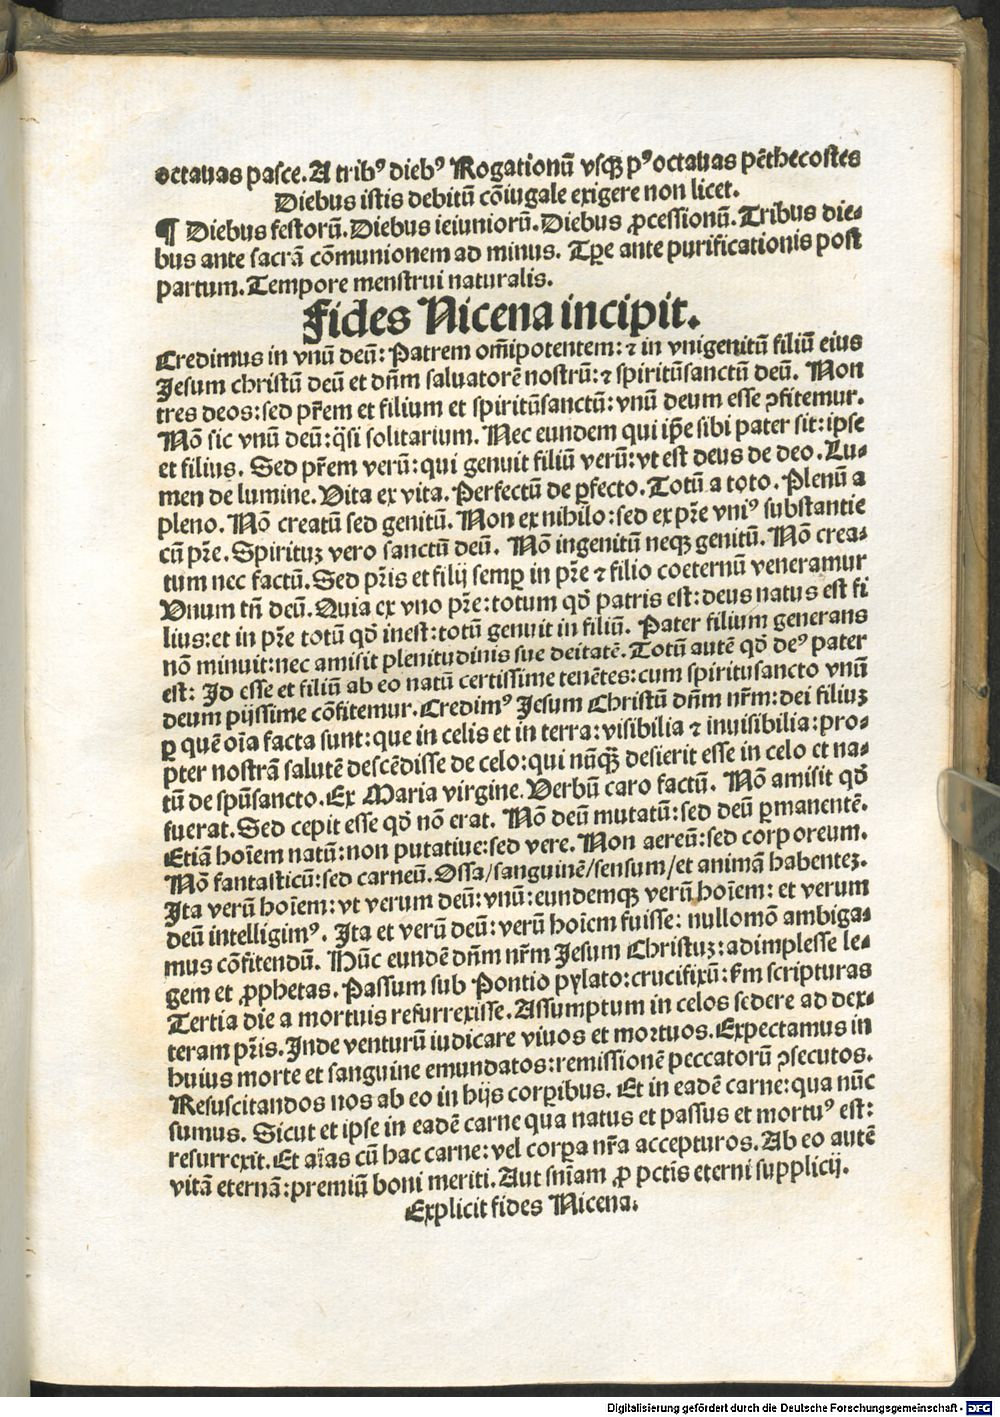 octauas pasce. A tribꝰ diebꝰ Rogationū vsqꝫ pꝰ octauas pēthecostes
Diebus istis debitū cōiugale exigere non licet.
¶ Diebus festorū. Diebus ieiuniorū. Diebus ꝓcessionū. Tribus die-
bus ante sacrā cōmunionem ad minus. Tꝑe ante purificationis post
partum. Tempore menstrui naturalis.
Fides Nicena incipit.
Credimus in vnū deū: Patrem om̄ipotentem: ⁊ in vnigenitū filiū eius
Jesum christū deū et dn̄m saluatorē nostrū: ⁊ spiritūsanctū deū. Non
tres deos: sed pr̄em et filium et spiritūsanctū: vnū deum esse ꝯfitemur.
Nō sic vnū deū: q̄si solitarium. Nec eundem qui ip̄e sibi pater sit: ipse
et filius. Sed pr̄em verū: qui genuit filiū verū: vt est deus de deo. Lu-
men de lumine. Vita ex vita. Perfectū de ꝑfecto. Totū a toto. Plenū a
pleno. Nō creatū sed genitū. Non ex nihilo: sed ex pr̄e vniꝰ substantie
cū pr̄e. Spirituꝫ vero sanctū deū. Nō ingenitū neqꝫ genitū. Nō crea-
tum nec factū. Sed pr̄is et filij semꝑ in pr̄e ⁊ filio coeternū veneramur
Vnum tn̄ deū. Quia ex vno pr̄e: totum qd̄ patris est: deus natus est fi
lius: et in pr̄e totū qd̄ inest: totū genuit in filiū. Pater filium generans
nō minuit: nec amisit plenitudinis sue deitatē. Totū autē qd̄ deꝰ pater
est: Id esse et filiū ab eo natū certissime tenētes: cum spiritusancto vnū
deum pijssime cōfitemur. Credimꝰ Jesum Christū dn̄m nr̄m: dei filiuꝫ
ꝑ quē oīa facta sunt: que in celis et in terra: visibilia ⁊ inuisibilia: pro-
pter nostrā salutē descēdisse de celo: qui nūqꝫ̄ desierit esse in celo et na-
tū de spūsancto. Ex Maria virgine. Verbū caro factū. Nō amisit qd̄
fuerat. Sed cepit esse qd̄ nō erat. Nō deū mutatū: sed deū ꝑmanentē.
Etiā hoīem natū: non putatiue: sed vere. Non aereū: sed corporeum.
Nō fantasticū: sed carneū. Ossa/sanguinē/sensum/et animā habenteꝫ.
Ita verū hoīem: vt verum deū: vnū: eundemqꝫ verū hoīem: et verum
deū intelligimꝰ. Ita et verū deū: verū hoīem fuisse: nullomō ambiga-
mus cōfitendū. Hūc eundē dn̄m nr̄m Jesum Christuꝫ: adimplesse le-
gem et ꝓphetas. Passum sub Pontio pylato: crucifixū: s̄m scripturas
Tertia die a mortuis resurrexisse. Assumptum in celos sedere ad dex-
teram pr̄is. Inde venturū iudicare viuos et mortuos. Expectamus in
huius morte et sanguine emundatos: remissionē peccatorū ꝯsecutos.
Resuscitandos nos ab eo in hijs corꝑibus. Et in eadē carne: qua nūc
sumus. Sicut et ipse in eadē carne qua natus et passus et mortuꝰ est:
resurrexit. Et aīas cū hac carne: vel corꝑa nr̄a accepturos. Ab eo autē
vitā eternā: premiū boni meriti. Aut sn̄iam ꝓ pctīs eterni supplicij.
Explicit fides Nicena.
Digitalisierung gefördert durch die Deutsche Forschungsgemeinschaft - DFG